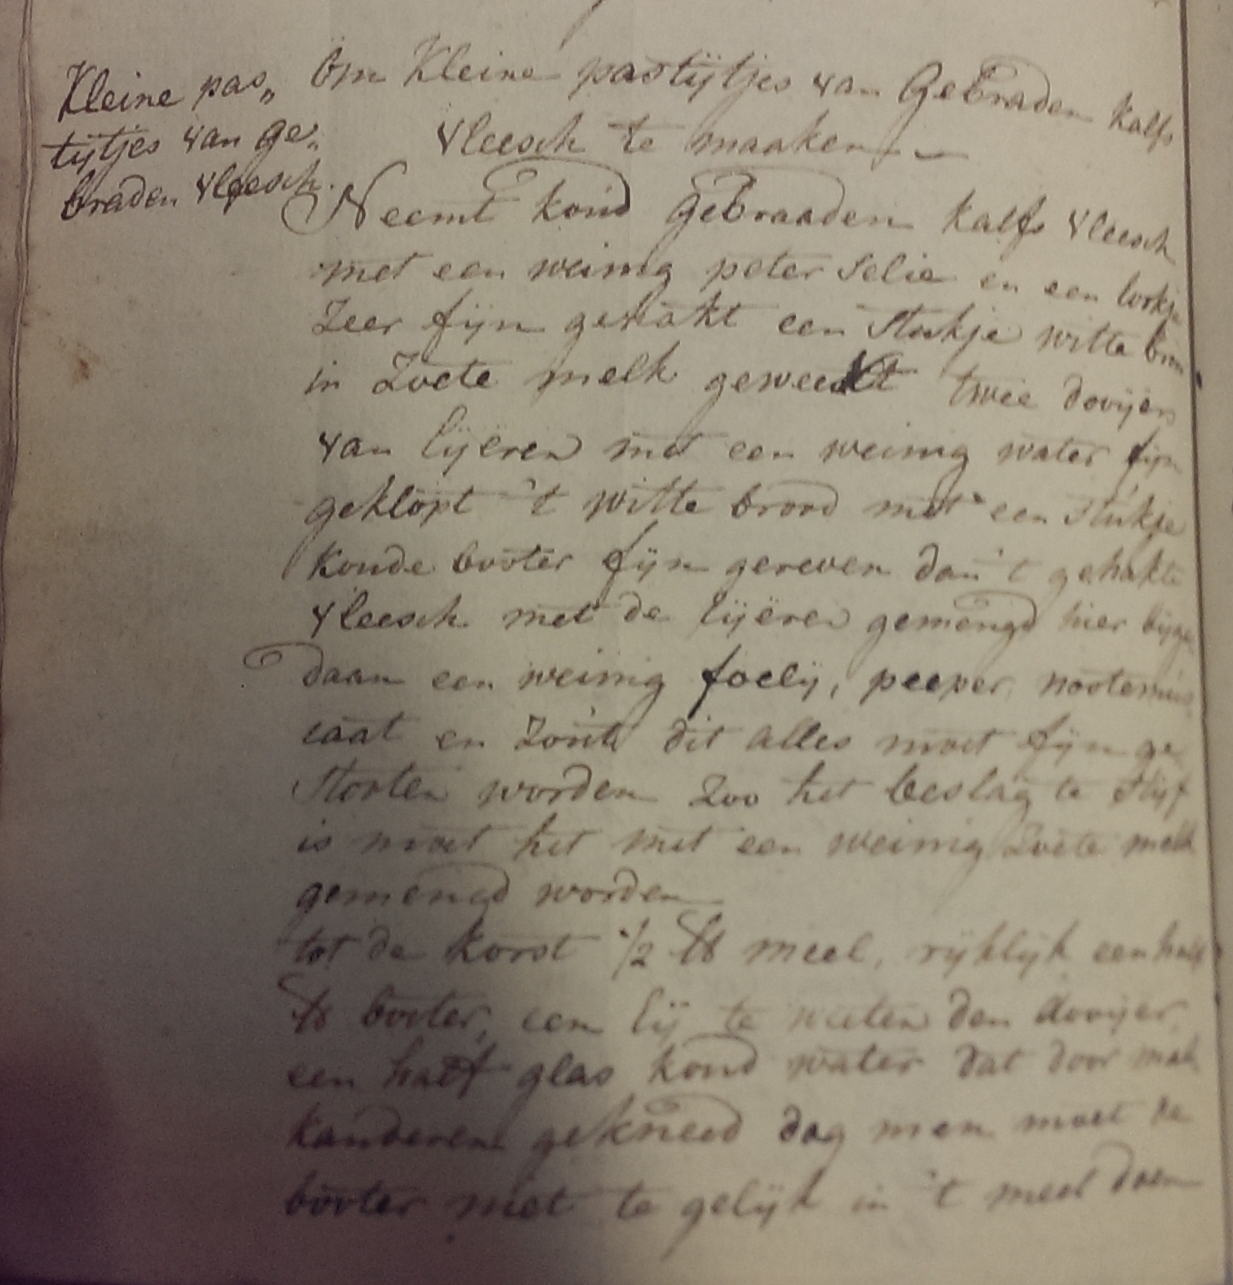 Kleine pas„
tijtjes van ge„
braden vleesch.
Om Kleine pastijtjes van Gebraden Kalfs
vleesch te maaken
Neemt koud Gebraaden Kalfs vleesch
met een weinig peter Selie en een
Zeer fijn gehakt een Stukje witte
in Zoete melk geweekt twee dooijers
van Eijeren met een weinig water fijn
geklopt 't witte brood met een Stukje
Koude booter fijn gereven dan 't gehakte
vleesch met de Eijeren gemengd hier bijge
daan een weinig foelij, peeper, nootemus
caat en Zout dit alles moet fijn ge
Stooten worden Zoo het beslag te Stijf
is moet het met een weinig Zoete melk
gemengd worden
tot de Korst ½ ℔ meel, rijklijk een half
℔ booter, een Eij te weeten den dooijer
een half glas koud water dat door mal
kanderen gekneed dog men moet de
booter niet te gelijk in 't meel doen